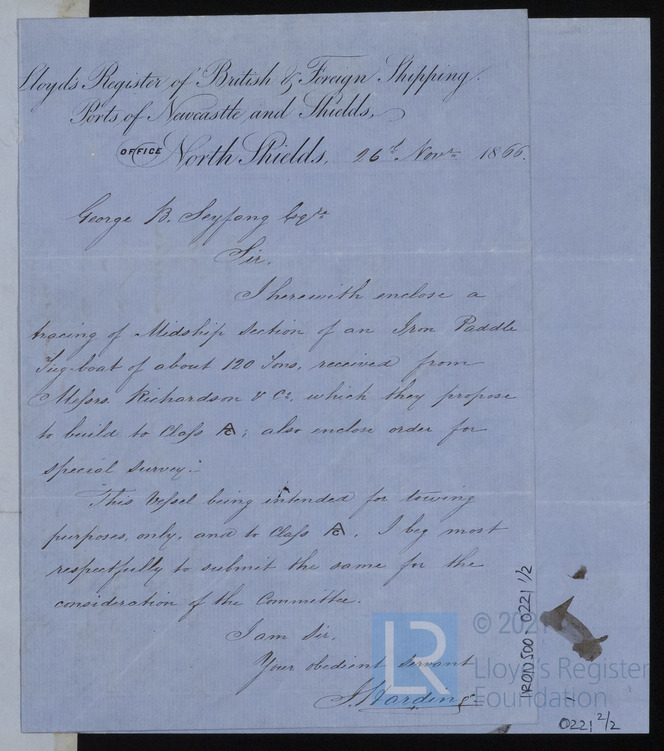 Lloyd's Register of British & Foreign Shipping.
Ports of Newcastle and Shields,
OFFICE North Shields, 26th Novr 1866.
George B. Seyfang Esqre
Sir,
I herewith enclose a
tracing of Midship section of an Iron Paddle
Tug-boat of about 120 Tons, received from
Messrs Richardson & Co. which they propose
to build to Class A; also enclose order for
special survey.
This Vessel being intended for towing
purposes only, and to Class A. I beg most
respectfully to submit the same for the
consideration of the Committee.
I am Sir,
Your obedient Servant
J. Harding
IRONS00 0221 1/2
0221 2/2
LR
© 202
Lloyd's Register
Foundation